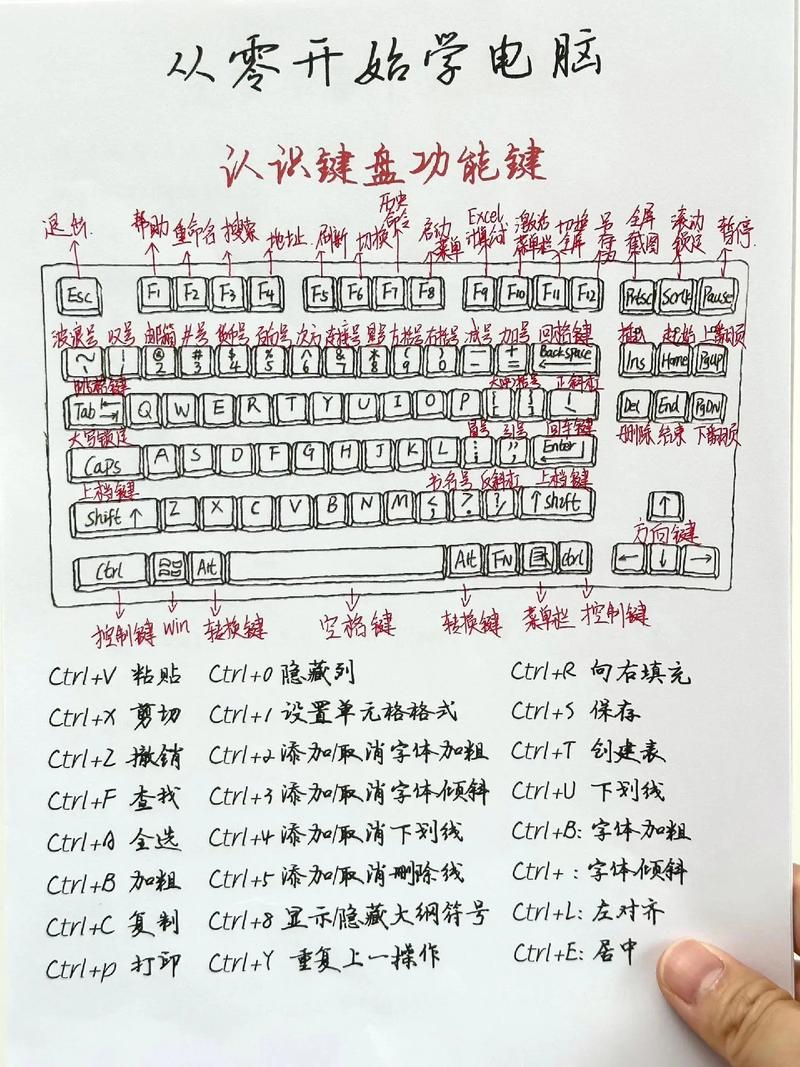 从零开始学电脑
认识键盘功能键
退出 帮助 重命名 搜索 地址 刷新 切换 历史命令 启动菜单 Excel计算公式 激活菜单栏 切换全屏 另存为 全屏截图 滚动锁定 暂停
Esc F1 F2 F3 F4 F5 F6 F7 F8 F9 F10 F11 F12 Prtsc Scrlk Pause
波浪号 叹号 邮箱 井号 货币号 百分号 次方 连接号 星号 左括号 右括号 减号 加号 回格键 插入 起始 上翻页
~ ! @ 2 # 3 $ 4 % 5 ^ 6 & 7 * 8 ( 9 ) 0 - + = Backspace Ins Home PgUp
跳格键 大中括号 正斜杠
Tab Q W E R T Y U I O P Del End PgDn
大写锁定 冒号 引号 回车键 删除 结束 下翻页
Caps A S D F G H J K L Enter
上档键 书名号 反斜杠 上档键
Shift ↑ Z X C V B N M ↑ Shift ↑
方向键
Ctrl Alt Alt FN Ctrl ← ↓ →
控制键 Win 转换键 空格键 转换键 菜单栏 控制键
Ctrl+V 粘贴 Ctrl+0 隐藏列 Ctrl+R 向右填充
Ctrl+X 剪切 Ctrl+1 设置单元格格式 Ctrl+S 保存
Ctrl+Z 撤销 Ctrl+2 添加/取消字体加粗 Ctrl+T 创建表
Ctrl+F 查找 Ctrl+3 添加/取消字体倾斜 Ctrl+U 下划线
Ctrl+A 全选 Ctrl+4 添加/取消下划线 Ctrl+B: 字体加粗
Ctrl+B 加粗 Ctrl+5 添加/取消删除线 Ctrl+ : 字体倾斜
Ctrl+C 复制 Ctrl+8 显示/隐藏大纲符号 Ctrl+L: 左对齐
Ctrl+P 打印 Ctrl+Y 重复上一操作 Ctrl+E: 居中